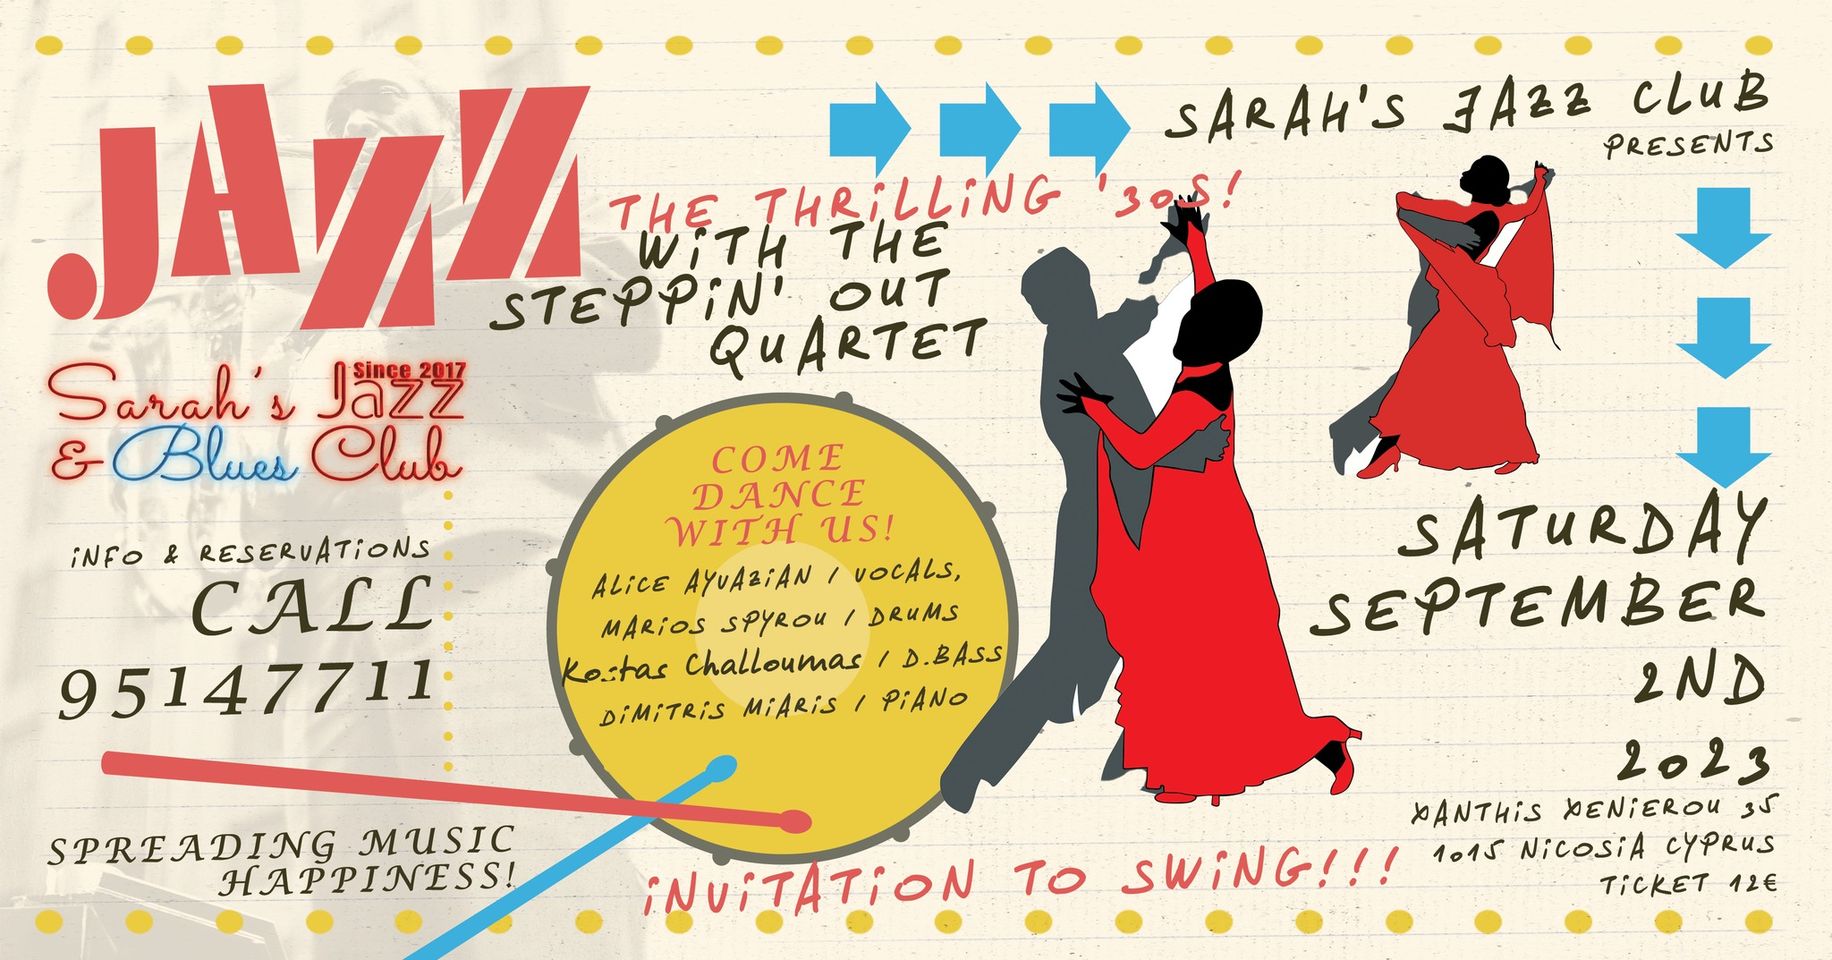 JAZZ
SARAH'S JAZZ CLUB
PRESENTS
THE THRILLING '30S!
WITH THE
STEPPIN' OUT
QUARTET
Since 2017
Sarah's Jazz
& Blues Club
INFO & RESERVATIONS
CALL
95147711
SPREADING MUSIC
HAPPINESS!
COME
DANCE
WITH US!
ALICE AYVAZIAN / VOCALS,
MARIOS SPYROU / DRUMS
Kostas Challoumas / D.BASS
DIMITRIS MIARIS / PIANO
INVITATION TO SWING!!!
SATURDAY
SEPTEMBER
2ND
2023
XANTHIS XENIEROU 35
1015 NICOSIA CYPRUS
TICKET 12€